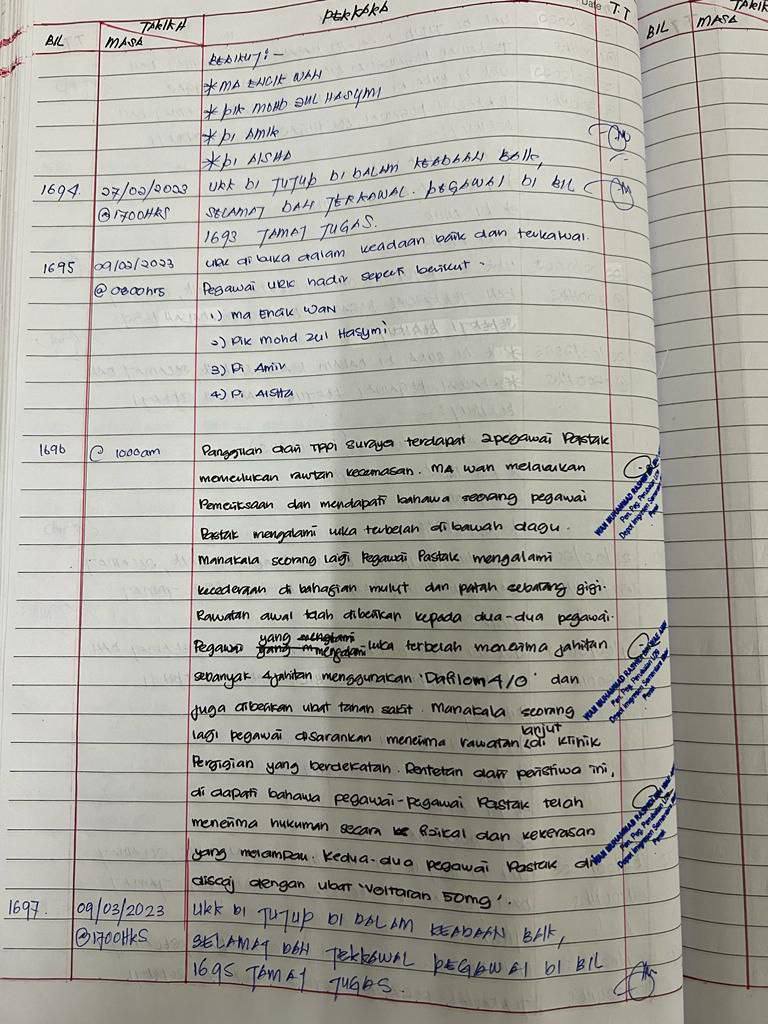 BIL
TARIKH
MASA
PERKARA
Date
T.T
BIL
MASA
BERIKUT:-
*MA ENCIK WAN
*PIK MOHD ZUL HASYMI
*PI AMIR
*PI AISHA
1694. 27/02/2023 UKK DI TUTUP DI DALAM KEADAAN BAIK,
@1700HRS SELAMAT DAN TERKAWAL. PEGAWAI DI BIL
1693 TAMAT TUGAS.
1695 09/02/2023 UKK dibuka dalam keadaan baik dan terkawal.
@0800hrs Pegawai UKK hadir seperti berikut -
1) MA Encik WAN
2) PIK Mohd Zul Hasymi
3) PI Amir
4) PI AISHA
1696 @ 1000am Panggilan dari TPPI Suraya terdapat 2 pegawai Pastak
memerlukan rawtan kecemasan. MA wan melakukan
Pemeriksaan dan mendapati bahawa seorang pegawai
Pastak mengalami luka terbelah di bawah dagu.
Manakala seorang lagi Pegawai Pastak mengalami
kecederaan di bahagian mulut dan patah sebatang gigi.
Rawatan awal telah diberikan kepada dua-dua pegawai.
Pegawai yang mengalami luka terbelah menerima jahitan
sebanyak 4 jahitan menggunakan 'Dafilom 4/0' dan
juga diberikan ubat tahan sakit. Manakala seorang
lagi pegawai disarankan menerima rawatan lanjut di klinik
Pergigian yang berdekatan. Rentetan dari peristiwa ini,
di dapati bahawa pegawai-pegawai Pastak telah
menerima hukuman secara fizikal dan kekerasan
yang melampau. Kedua-dua pegawai Pastak di
discaj dengan ubat 'Voltaran 50mg'.
1697. 09/03/2023 UKK DI TUTUP DI DALAM KEADAAN BAIK,
@1700HRS SELAMAT DAN TERKAWAL PEGAWAI DI BIL
1695 TAMAT TUGAS.